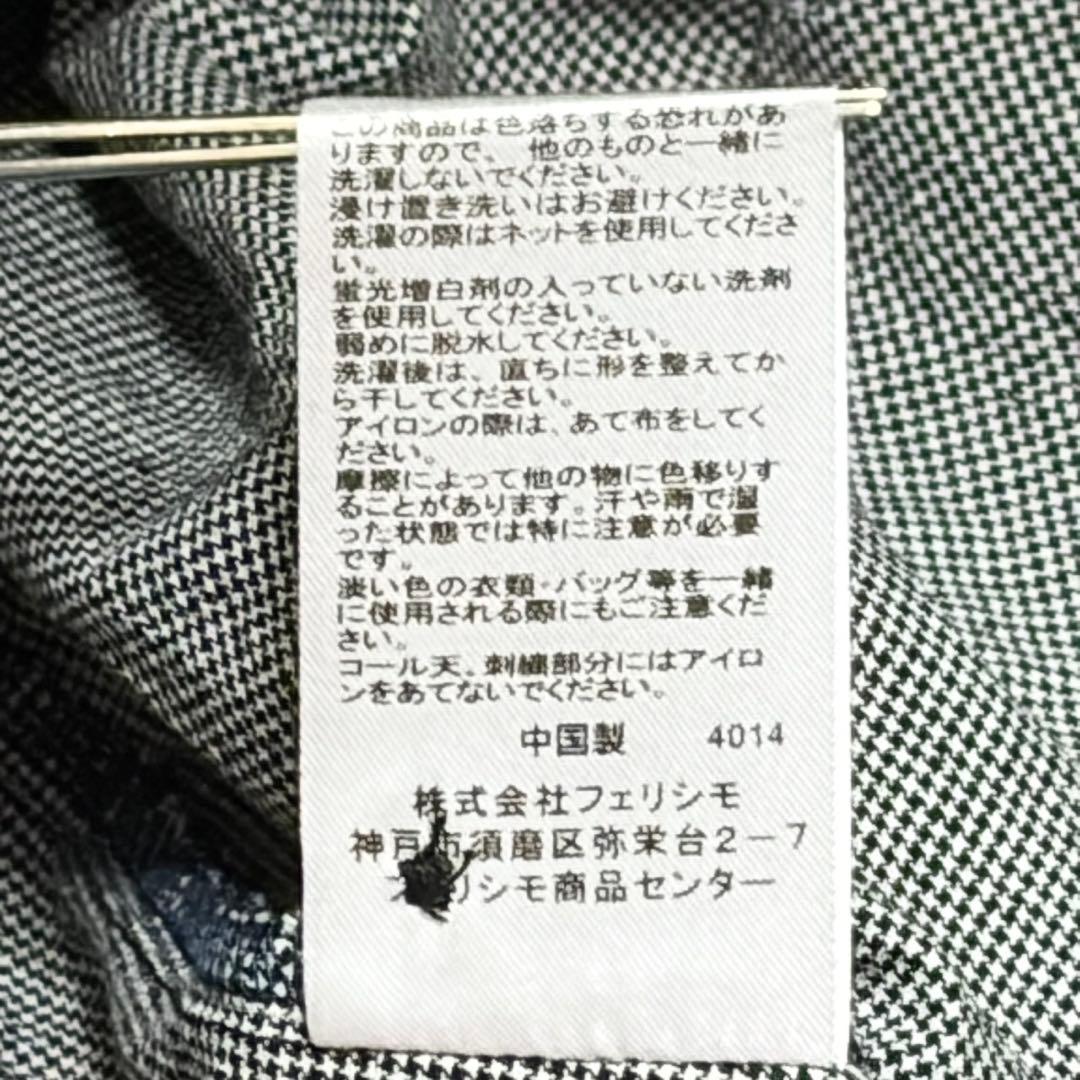 この商品は色落ちする恐れがあ
りますので、他のものと一緒に
洗濯しないでください。
浸け置き洗いはお避けください。
洗濯の際はネットを使用してくださ
い。
蛍光増白剤の入っていない洗剤
を使用してください。
弱めに脱水してください。
洗濯後は、直ちに形を整えてか
ら干してください。
アイロンの際は、あて布をしてく
ださい。
摩擦によって他の物に色移りす
ることがあります。汗や雨で湿
った状態では特に注意が必要
です。
淡い色の衣類・バッグ等を一緒
に使用される際にもご注意くだ
さい。
コール天、刺繍部分にはアイロ
ンをあてないでください。
中国製 4014
株式会社フェリシモ
神戸市須磨区弥栄台2-7
フェリシモ商品センター